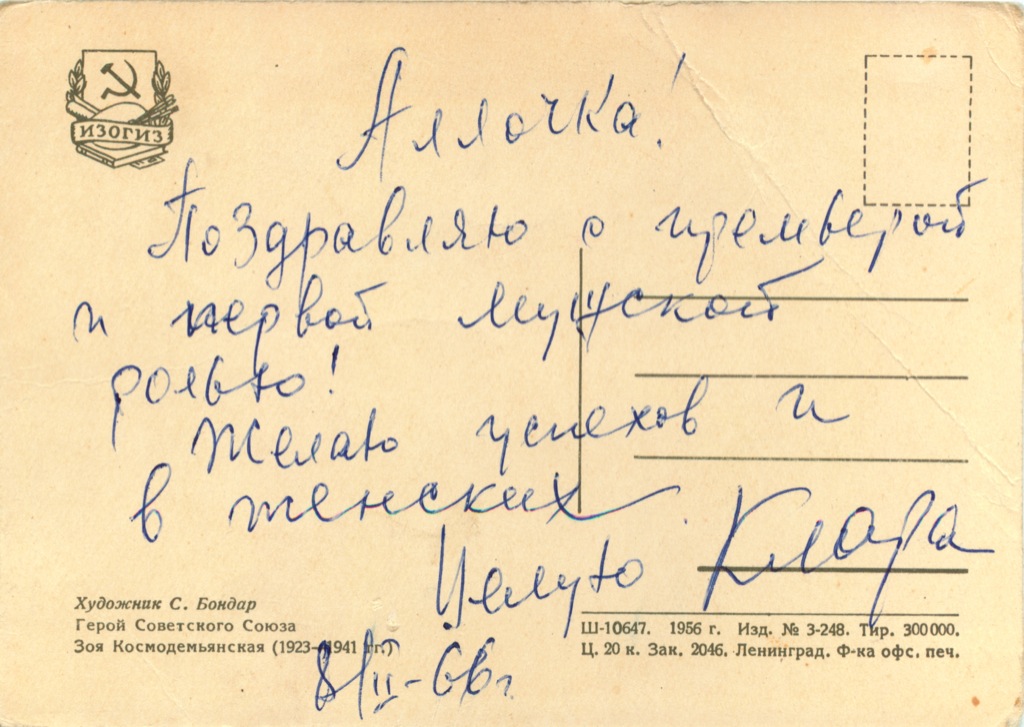 ИЗОГИЗ
Аллочка!
Поздравляю с премьерой
и первой мужской
ролью!
Желаю успехов и
в женских
Целую Клара
8/II-66г.
Художник С. Бондар
Герой Советского Союза
Зоя Космодемьянская (1923—1941 гг.)
Ш-10647. 1956 г. Изд. № 3-248. Тир. 300 000.
Ц. 20 к. Зак. 2046. Ленинград. Ф-ка офс. печ.